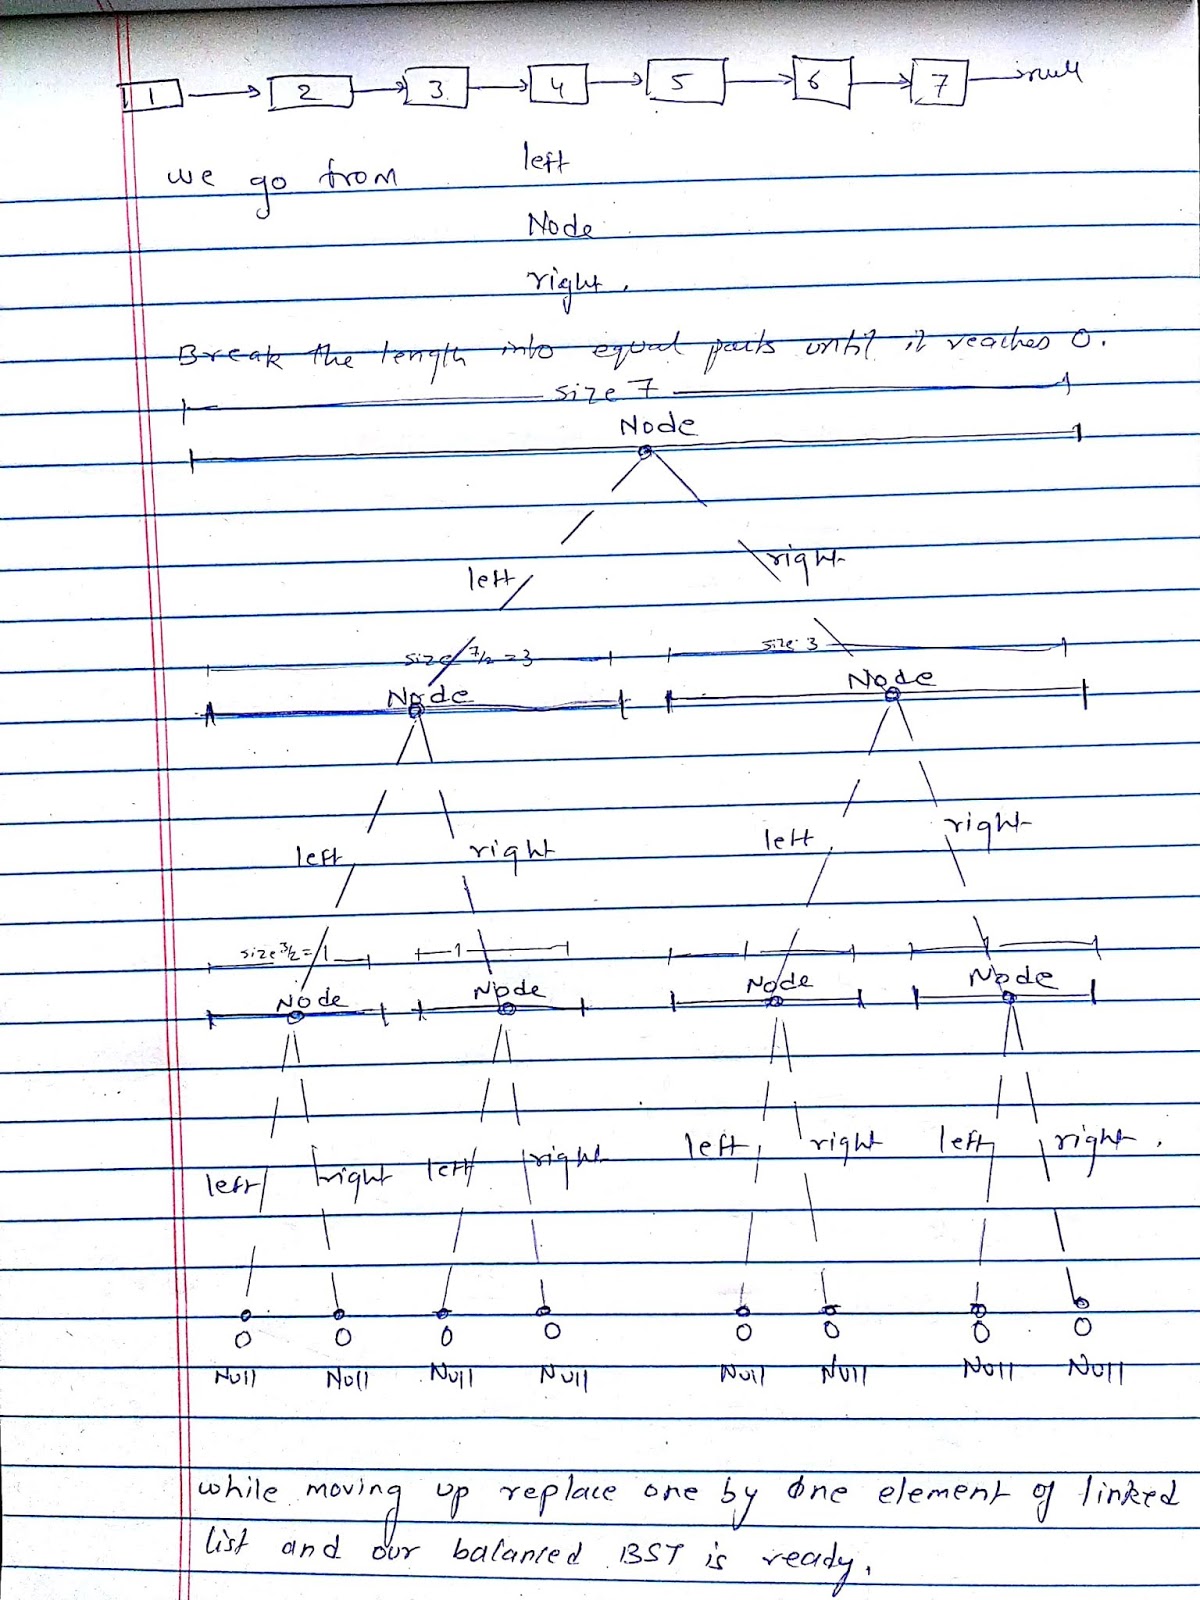 1 2 3 4 5 6 7 null
we go from left
Node
right.
Break the length into equal parts until it reaches 0.
size 7
Node
left right
size 7/2 = 3 size 3
Node Node
left right left right
size 3/2 = 1 1
Node Node Node Node
left right left right left right left right.
0 0 0 0 0 0 0 0
Null Null Null Null Null Null Null Null
while moving up replace one by one element of linked
list and our balanced BST is ready.